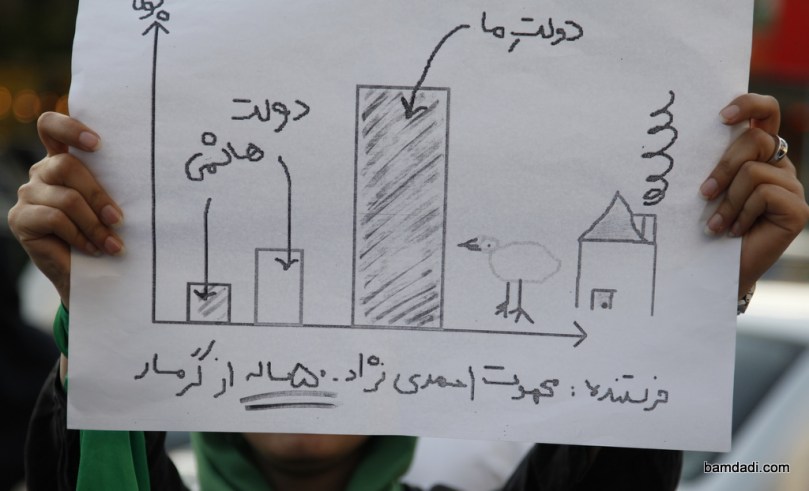 دولتِ ما
دولت
هاشمی
فرستنده : محموت احمدی نژاد ۵۰ساله از گرمسار
bamdadi.com